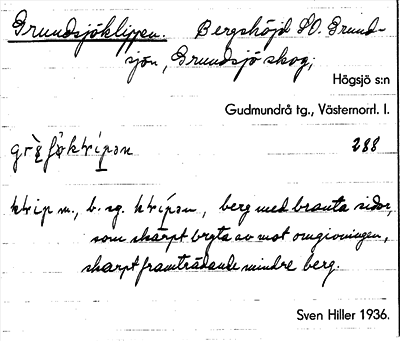 Grundsjöklippen. Bergshöjd SO. Grund-
sjön, Grundsjö skog,
Högsjö s:n
Gudmundrå tg., Västernorrl. l.
288
m., b. sg. berg med branta sidor,
som skarpt bryta av mot omgivningen,
skarpt framträdande mindre berg.
Sven Hiller 1936.